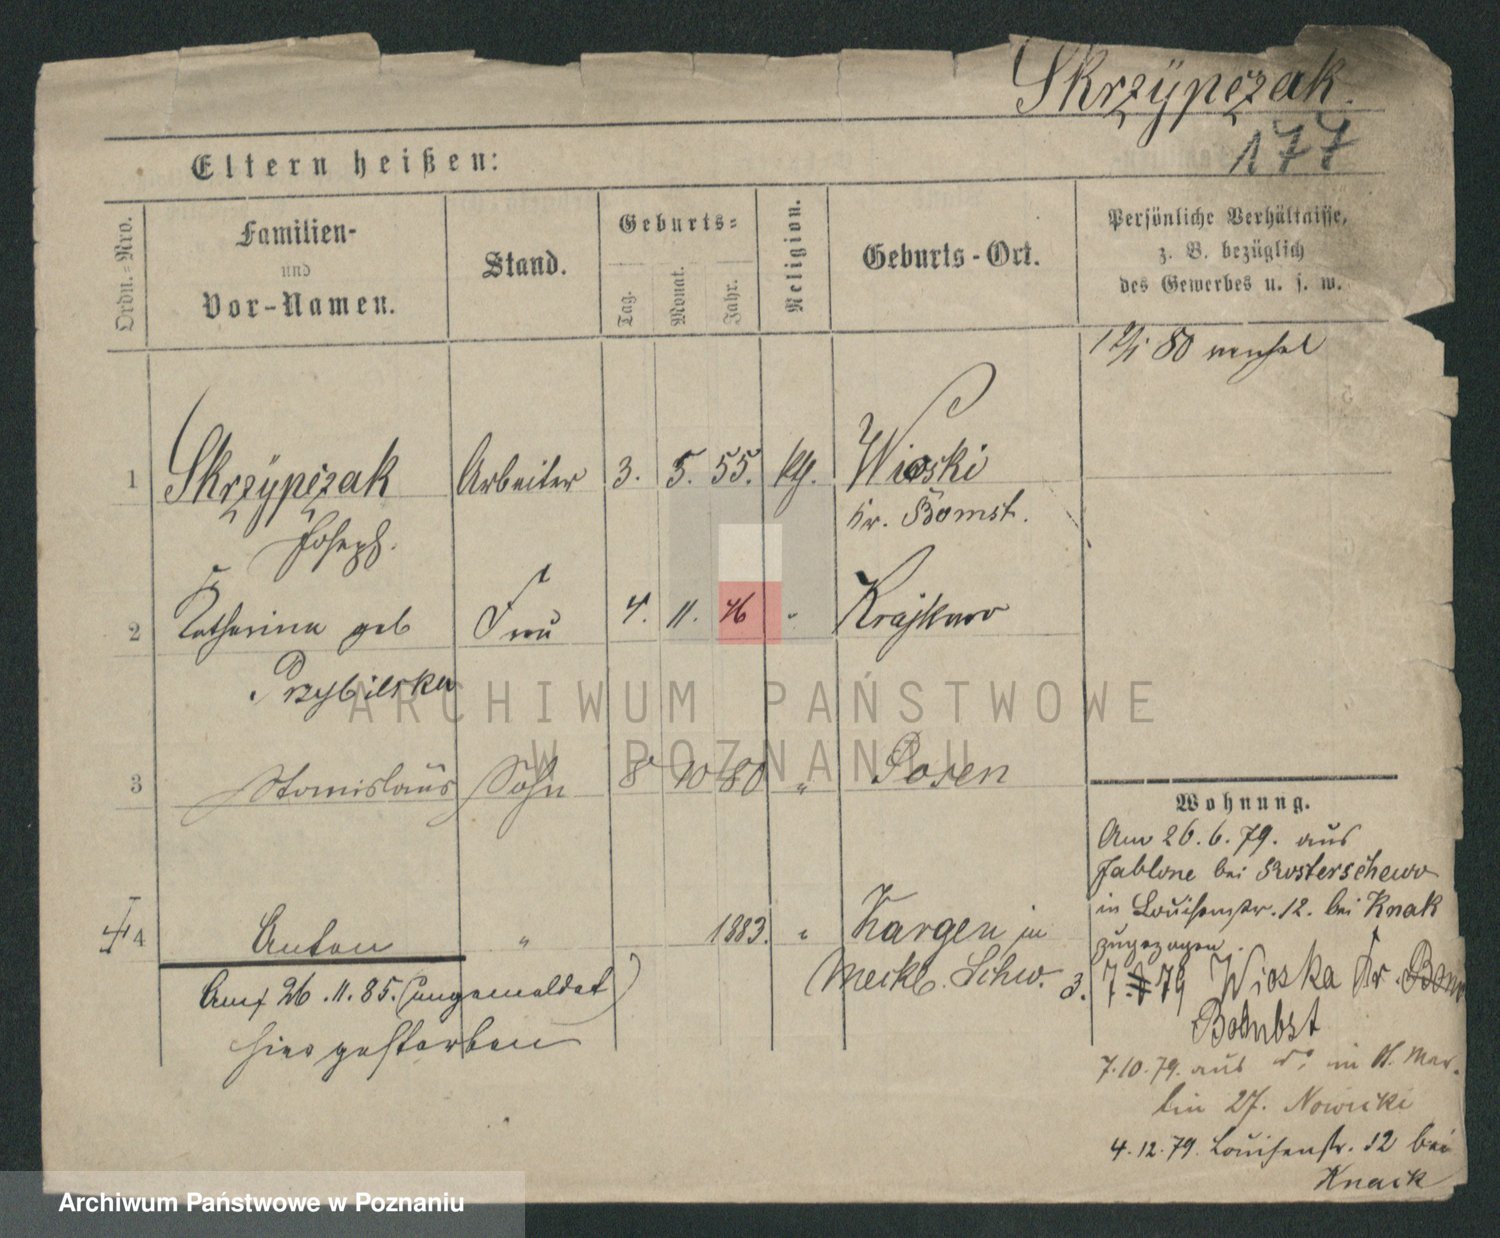 Skrzÿpczak.
177
Eltern heißen:
Ordn.=Nro.
Familien-
und
Vor-Namen.
Stand.
Geburts=
Tag.
Monat.
Jahr.
Religion.
Geburts-Ort.
Persönliche Verhältnisse,
z. B. bezüglich
des Gewerbes u. s. w.
80
1 Skrzÿpczak Arbeiter 3. 5. 55. kth. Wioski
Joseph. Kr. Bomst.
2 Katharina geb Frau 4. 11. 46 "
Przybilska
3 Stanislaus Sohn 8 10 80 " Posen
4 Anton " 1883. " Kargen in
Meckl. Schw.
Am 26.11.85. (angemeldet)
hier gestorben
Wohnung.
Am 26.6.79. aus
Jablone bei Rosterschewo
in Louisenstr. 12. bei Knak
zugezogen.
3. 7. 79 Wioska Kr. Bom
Bombst
7.10.79. aus in St. Mar-
tin 27. Nowicki
4.12.79. Louisenstr. 12 bei
Knack
ARCHIWUM PAŃSTWOWE
W POZNANIU
Archiwum Państwowe w Poznaniu